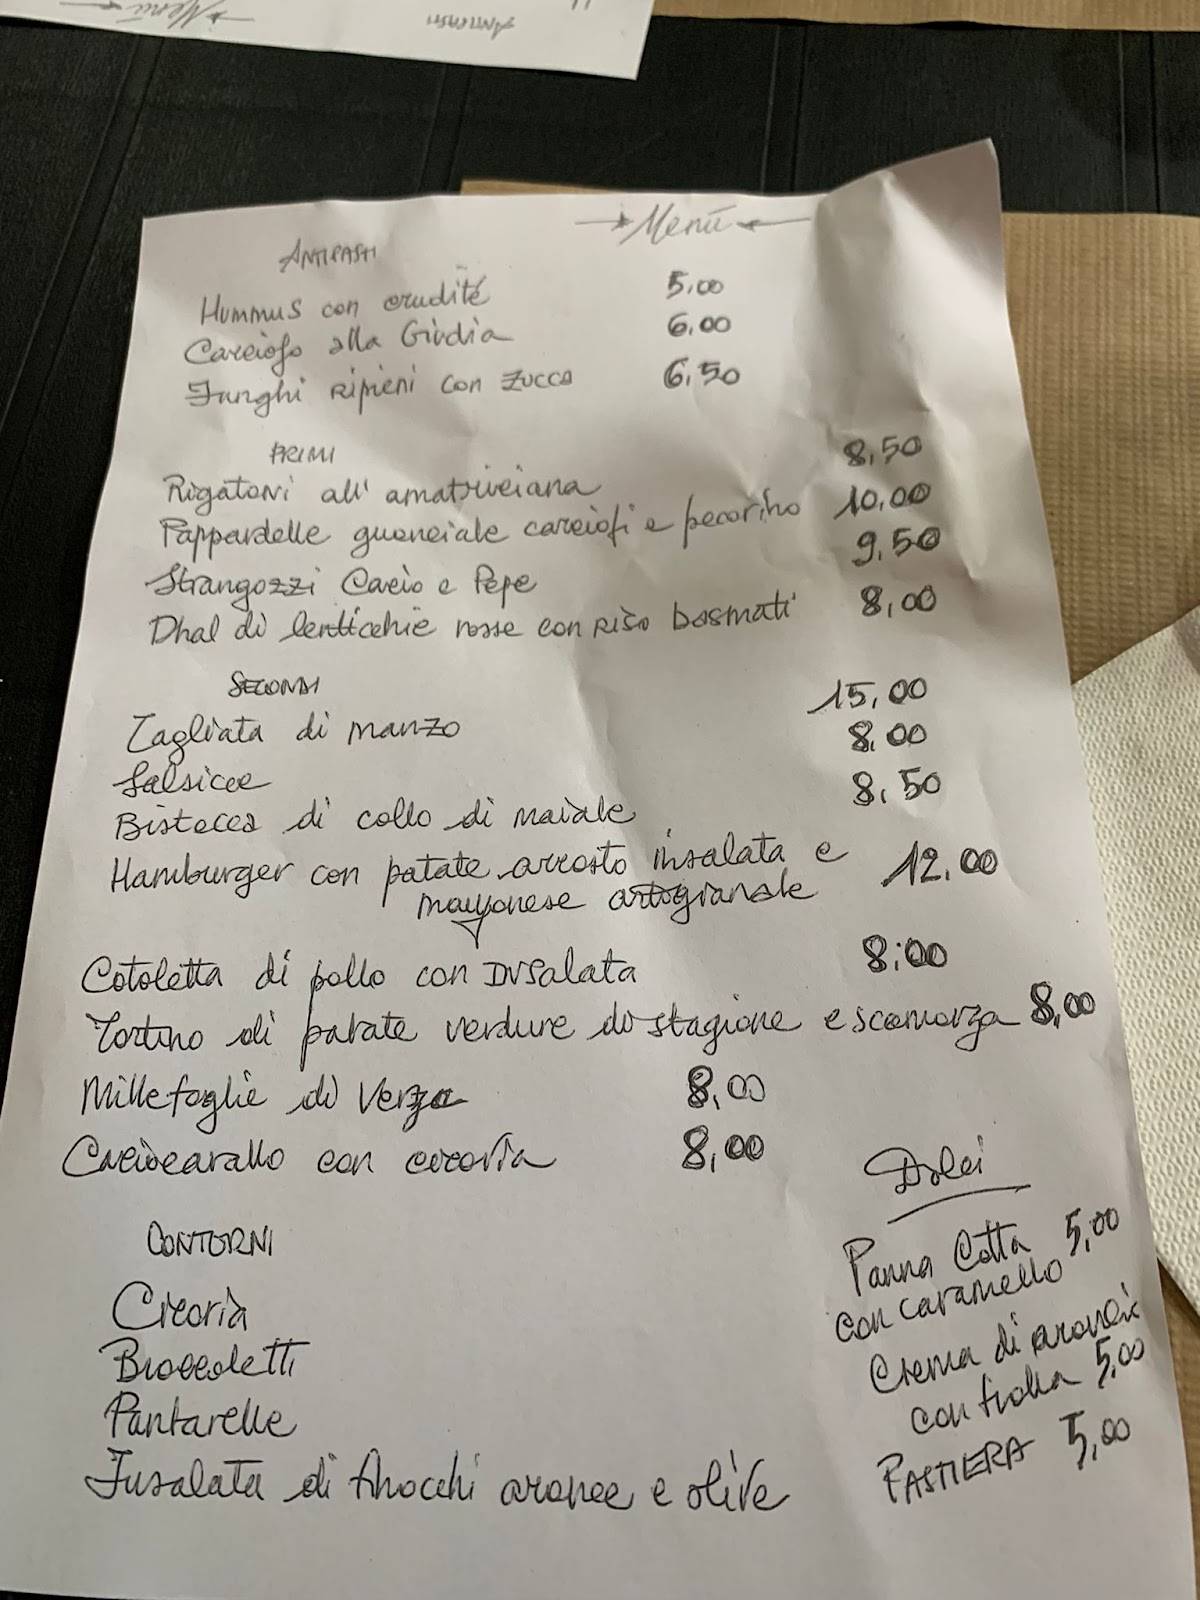 Menù
ANTIPASTI
Menù
ANTIPASTI
Hummus con crudité 5,00
Carciofo alla Giudia 6,00
Funghi ripieni con zucca 6,50
PRIMI
Rigatoni all' amatriciana 8,50
Pappardelle guanciale carciofi e pecorino 10,00
Strangozzi Cacio e Pepe 9,50
Dhal di lenticchie rosse con riso basmati 8,00
SECONDI
Tagliata di manzo 15,00
Salsicce 8,00
Bistecca di collo di maiale 8,50
Hamburger con patate arrosto insalata e 12,00
mayonese artogianale
Cotoletta di pollo con insalata 8:00
Tortino di patate verdure di stagione e scamorza 8,00
Millefoglie di verza 8,00
Caciocavallo con cicoria 8,00
CONTORNI
Cicoria
Broccoletti
Puntarelle
Insalata di finocchi arance e olive
Dolci
Panna Cotta 5,00
con caramello
Crema di arancia
con frolla 5,00
PASTIERA 5,00